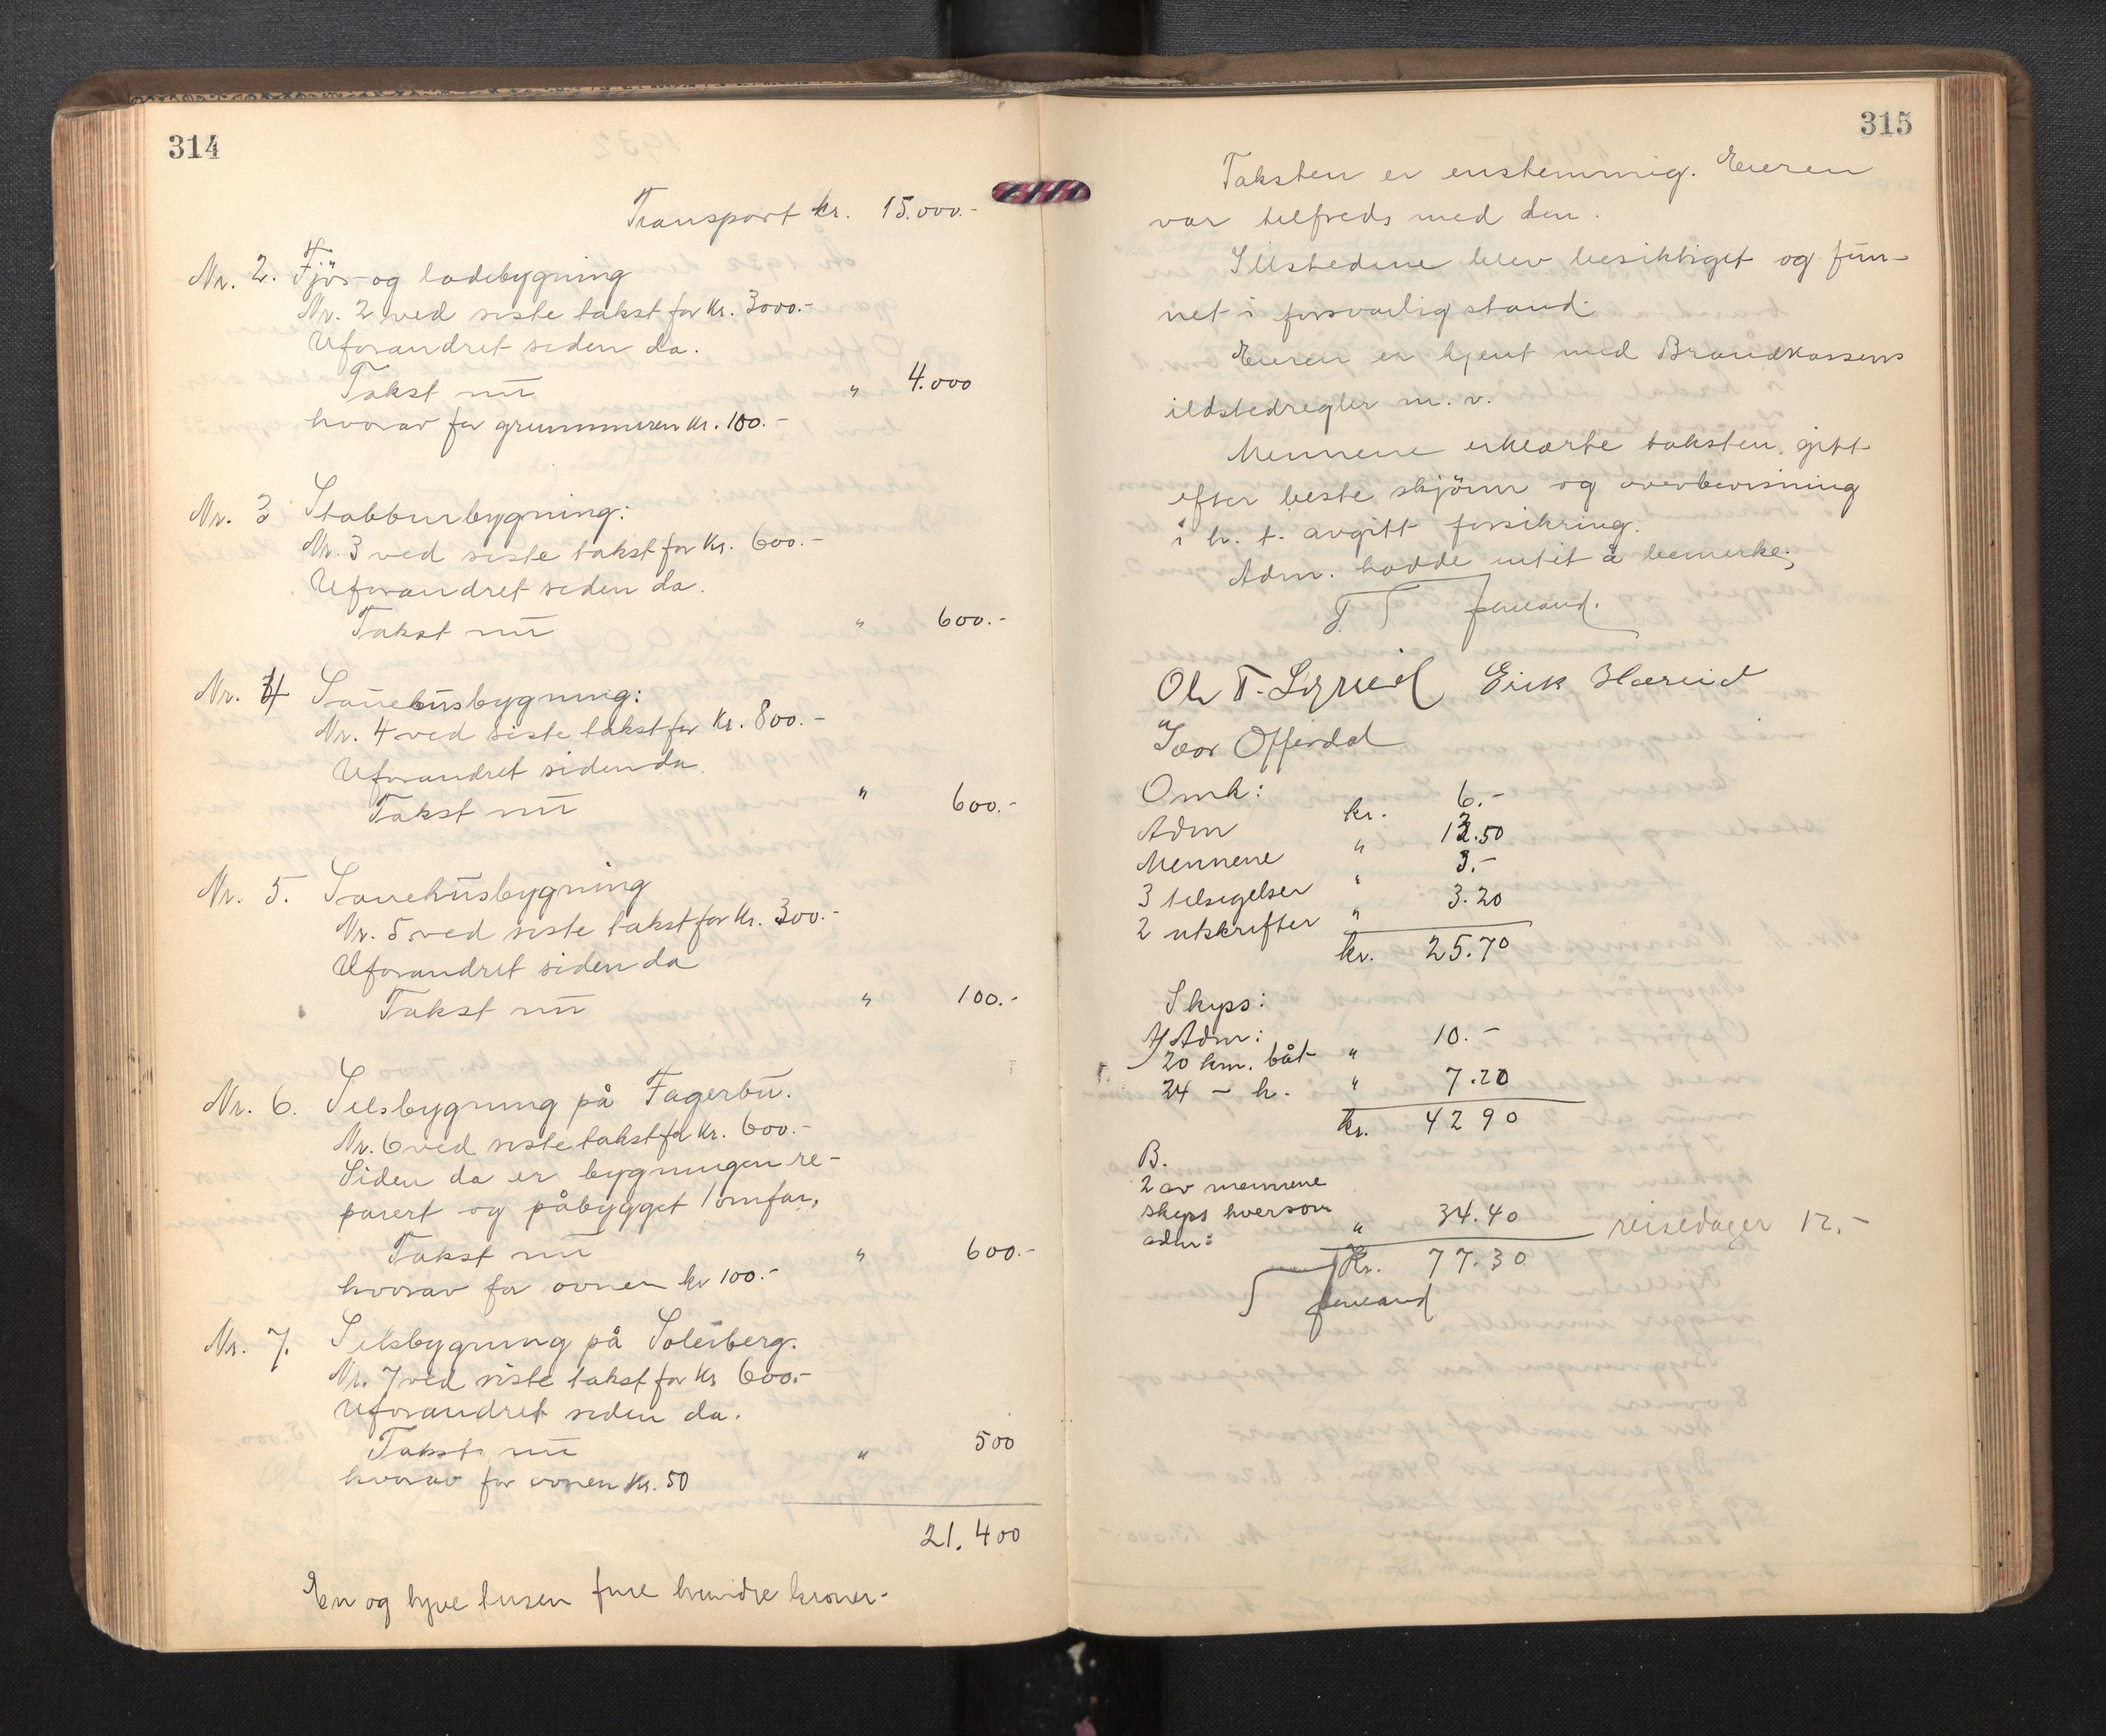 314
Transport kr. 15.000.-
Nr. 2. Fjös- og ladebygning
Nr. 2 ved siste takst for kr. 3000.-
Uforandret siden da.
Takst nu " 4.000
hvorav for grunnmuren kr. 100.-
Nr. 3 Stabburbygning:
Nr. 3 ved siste takst for kr. 600.-
Uforandret siden da.
Takst nu " 600.-
Nr. 4 Sauehusbygning:
Nr. 4 ved siste takst for kr. 800.-
Uforandret siden da.
Takst nu " 600.-
Nr. 5. Sauehusbygning
Nr. 5 ved siste takst for kr. 300.-
Uforandret siden da
Takst nu " 100.-
Nr. 6. Selsbygning på Fagerbu.
Nr. 6 ved siste takst for kr. 600.-
Siden da er bygningen re-
parert og påbygget 1 omfar,
Takst nu " 600.-
hvorav for ovnen kr 100.-
Nr. 7. Selsbygning på Soleiberg.
Nr. 7 ved siste takst for kr 600.-
Uforandret siden da.
Takst nu " 500
hvorav for ovnen kr. 50
21.400
En og tyve tusen fire hundre kroner-
315
Taksten er enstemmig. Eieren
var tilfreds med den.
Ildstedene blev besiktiget og fun-
net i forsvarlig stand.
Eieren er kjent med Brandkassens
ildstedregler m. v.
Mennene erklærte taksten gitt
efter beste skjönn og overbevisning
i h. t. avgitt forsikring.
Adm. hadde intet å bemerke;
Erik
Ivar Offerdal
Omk:
Adm kr. 6.-
Mennene " 13.50
3 tilsigelser " 3.-
2 utskrifter " 3.20
kr. 25.70
Skyss:
A/ Adm:
20 km. båt " 10.-
24 - h. " 7.20
kr. 42 90
B.
2 av mennene
skyss hver som
adm: " 34.40 reisedager 12.-
kr. 77.30